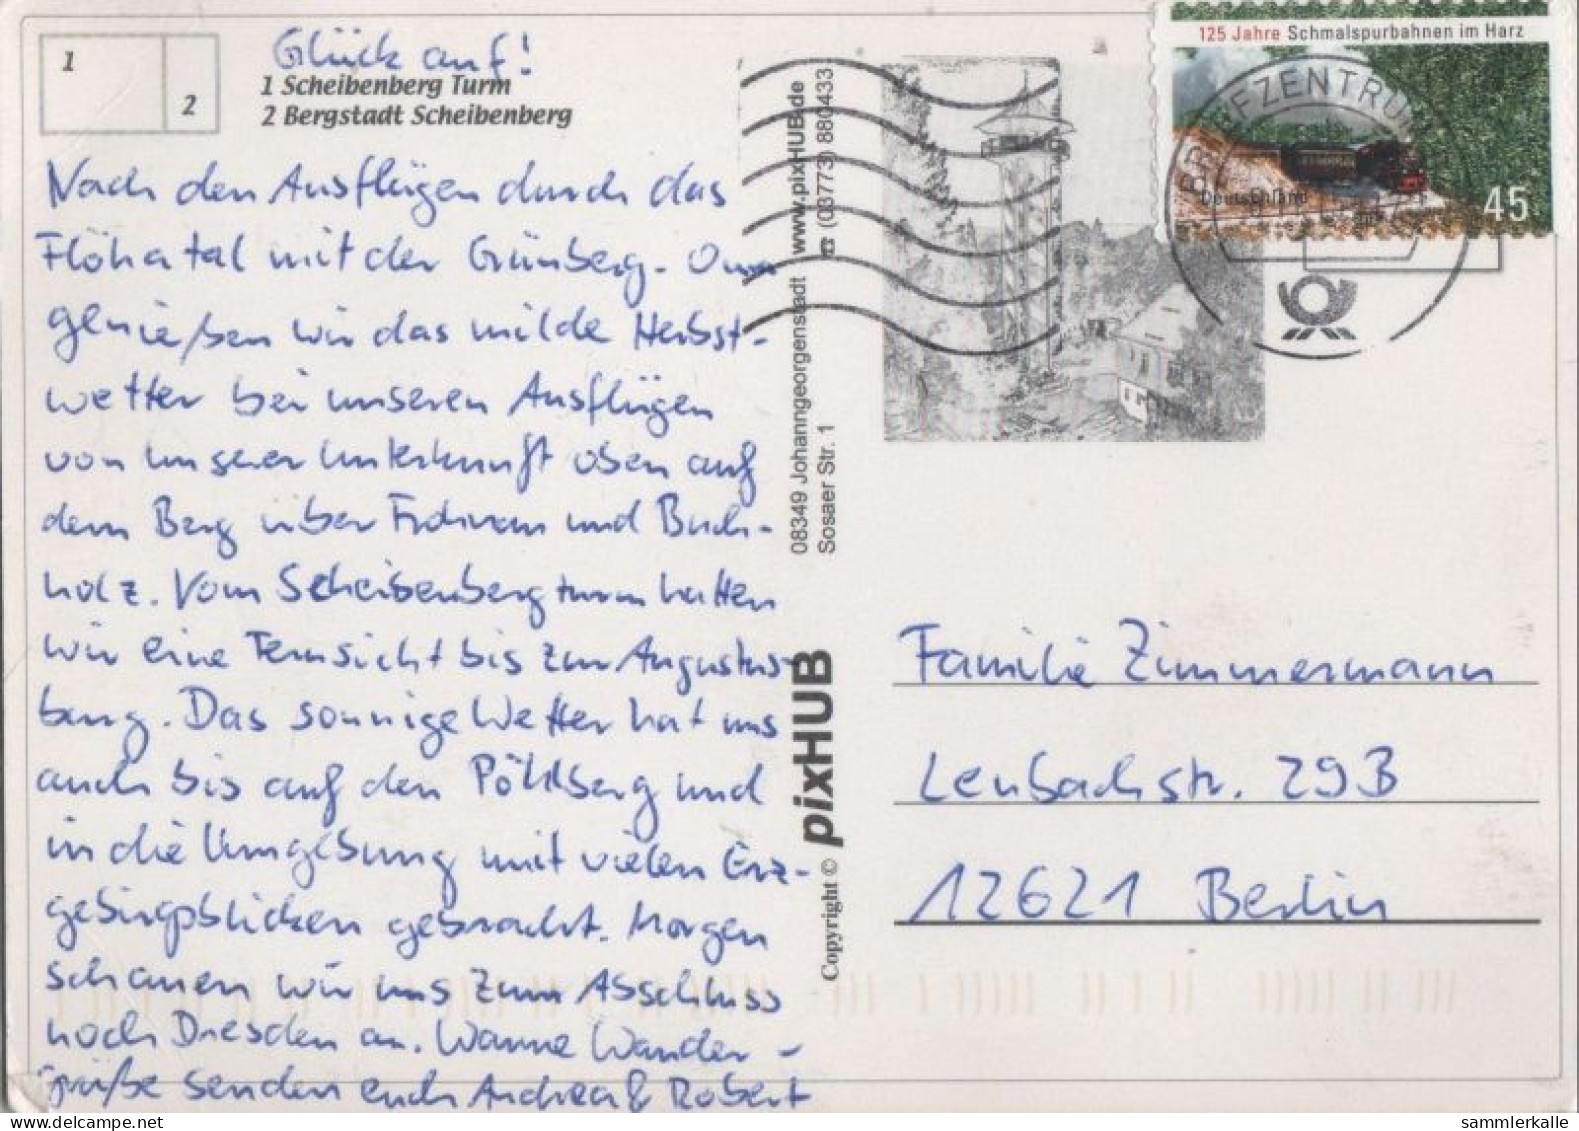 Glück auf!
1
2
1 Scheibenberg Turm
2 Bergstadt Scheibenberg
Nach den Ausflügen durch das
Flöhatal mit der Grünberg-Oma
genießen wir das milde Herbst-
wetter bei unseren Ausflügen
von unserer Unterkunft oben auf
dem Berg über Frohnau und Buch-
holz. Vom Scheibenbergturm hatten
wir eine Fernsicht bis zur Augustus-
burg. Das sonnige Wetter hat uns
auch bis auf den Pöhlberg und
in die Umgebung mit vielen Erz-
gebirgsblicken gebracht. Morgen
schauen wir uns zum Abschluss
noch Dresden an. Warme Wander-
grüße senden euch Andrea & Robert
08349 Johanngeorgenstadt www.pixHUB.de
Sosaer Str. 1 ☎ (03773) 880433
Copyright © pixHUB
125 Jahre Schmalspurbahnen im Harz
Deutschland
45
BRIEFZENTRUM
Familie Zimmermann
Lenbachstr. 29B
12621 Berlin
sammlerkalle